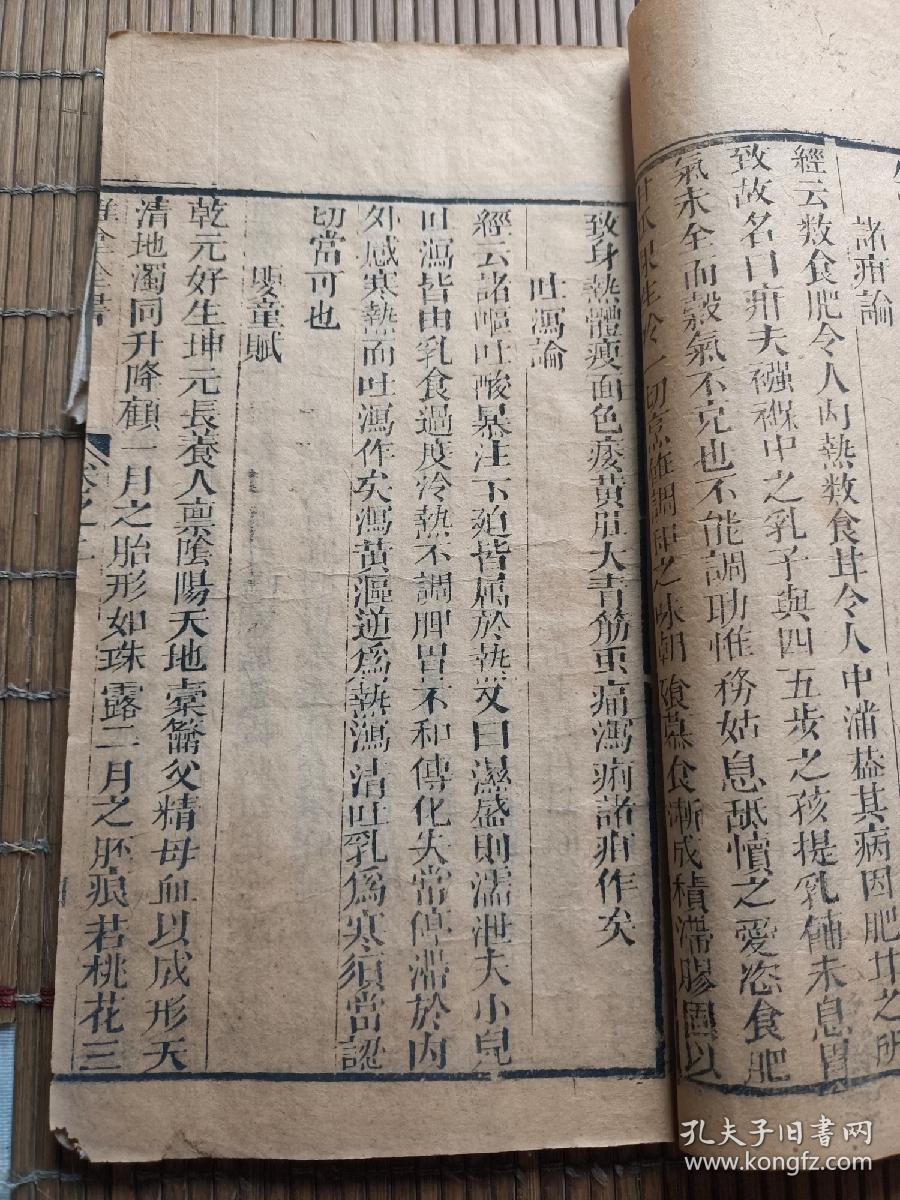 諸疳論
經云数食肥令人内熱数食甘令人中滿葢其病因肥甘之所
致故名曰疳夫襁褓中之乳子與四五歩之孩提乳餔未息胃
氣未全而榖氣不克也不能調助惟務姑息舐犢之愛恣食肥
甘瓜果生冷一切烹煿調和之味朝飱暮食漸成積滯膠固以
致身熱體瘦面色痿黄肚大青筋虫痛瀉痢諸疳作矣
吐瀉論
經云諸嘔吐酸暴注下廹皆属於热又曰濕盛則濡泄夫小兒
吐瀉皆由乳食過度冷熱不調脾胃不和傳化失常停滯於内
外感寒熱而吐瀉作矣瀉黄漚逆為熱瀉清吐乳爲寒須當認
切當可也
嬰童賦
乾元好生坤元長養人禀隂陽天地槖籥父精母血以成形天
清地濁同升降顧一月之胎形如珠露二月之胚痕若桃花三
推拿全書
卷之二
孔夫子旧书网
www.kongfz.com